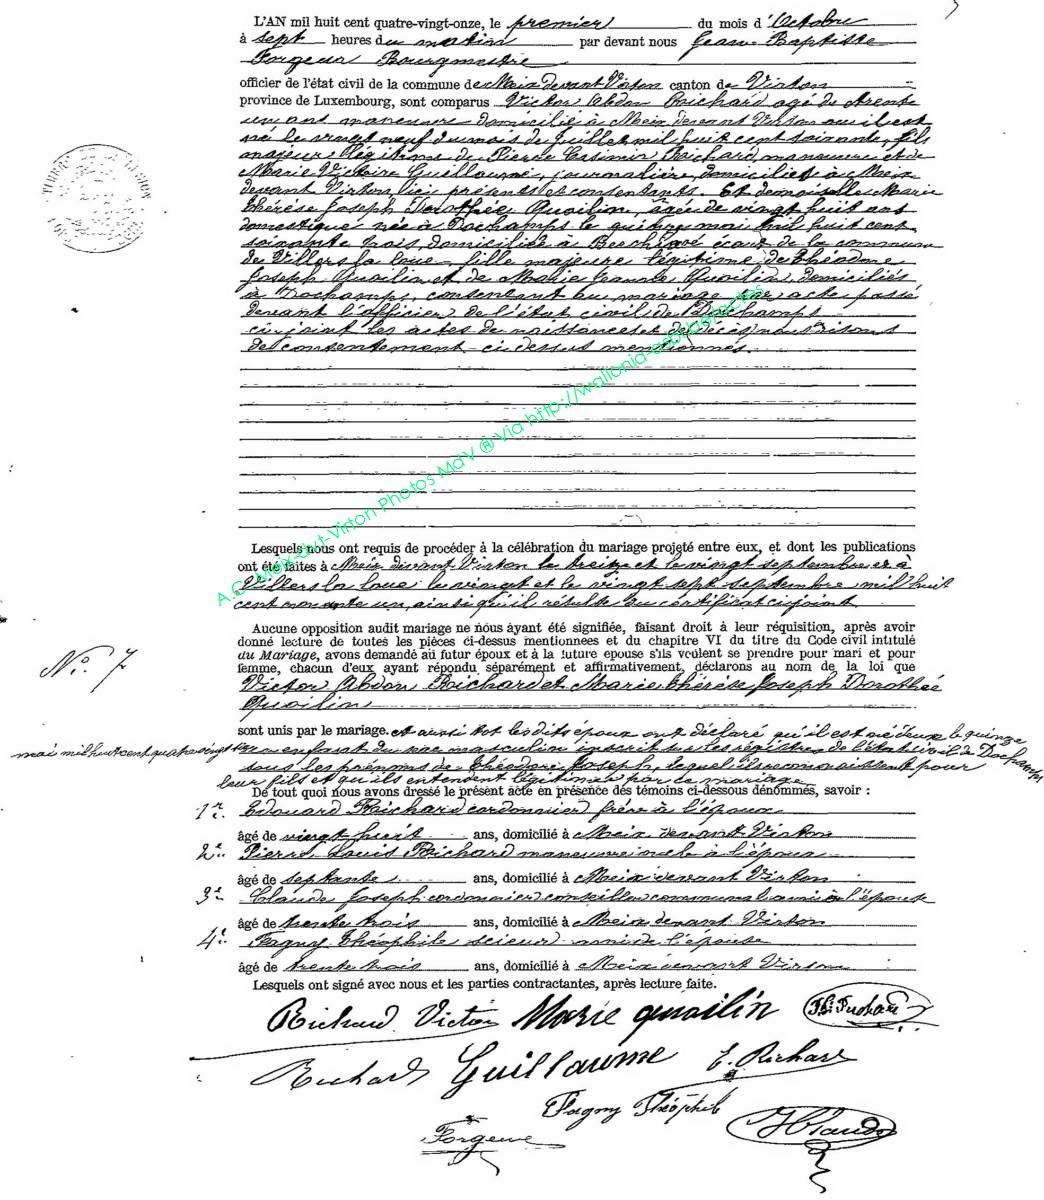 L'AN mil huit cent quatre-vingt-onze, le premier du mois d'Octobre
à sept heures du matin par devant nous Jean Baptiste
Forgeur Bourgmestre
officier de l'état civil de la commune de Meix devant Virton canton de Virton
province de Luxembourg, sont comparus Victor Abdon Richard agé de trente
un ans manœuvre domicilié à Meix devant Virton où il est
né le vingt neuf du mois de Juillet mil huit cent soixante, fils
majeur légitime de Pierre Casimir Richard, manœuvre et de
Marie Victoire Guillaume, journalière, domiciliés à Meix
devant Virton, ici présents et consentants. Et demoiselle Marie
Thérèse Joseph Dorothée Quoilin, âgée de vingt huit ans
domestique née à Dochamps le quinze mai mil huit cent
soixante trois, domiciliée à Berchivé écart de la commune
de Villers la loue, fille majeure légitime de Théodore
Joseph Quoilin et de Marie Jeanne Quoilin, domiciliés
à Dochamps, consentant au mariage par acte passé
devant l'officier de l'état civil de Dochamps
ci-joint les actes de naissances et de décès
de consentement ci-dessus mentionnés.
Lesquels nous ont requis de procéder à la célébration du mariage projeté entre eux, et dont les publications
ont été faites à Meix devant Virton le treize et le vingt septembre et à
Villers la loue le vingt et le vingt sept septembre mil huit
cent nonante un, ainsi qu'il résulte du certificat ci-joint
Aucune opposition audit mariage ne nous ayant été signifiée, faisant droit à leur réquisition, après avoir
donné lecture de toutes les pièces ci-dessus mentionnees et du chapitre VI du titre du Code civil intitulé
du Mariage, avons demandé au futur époux et à la future epouse s'ils veulent se prendre pour mari et pour
femme, chacun d'eux ayant répondu séparément et affirmativement, déclarons au nom de la loi que
No. 7
Victor Abdon Richard et Marie Thérèse Joseph Dorothée
Quoilin
sont unis par le mariage. et aussi tot les dits époux ont déclaré qu'il est né d'eux le quinze
mai mil huit cent quatre vingt un enfant du sexe masculin inscrit sur les registres de l'état civil de Dochamps
sous les prénoms de Théodore Joseph, lequel ils reconnaissent pour
leur fils et qu'ils entendent légitimer par ce mariage
De tout quoi nous avons dressé le présent acte en présence des témoins ci-dessous dénommés, savoir :
1er Edouard Richard cordonnier frère à l'époux
âgé de vingt huit ans, domicilié à Meix devant Virton
2e Pierre Louis Richard manœuvre oncle à l'époux
âgé de septante ans, domicilié à Meix devant Virton
3e Claude Joseph cordonnier conseiller communal ami à l'épouse
âgé de trente trois ans, domicilié à Meix devant Virton
4e Fagny Théophile scieur ami de l'épouse
âgé de trente trois ans, domicilié à Meix devant Virton
Lesquels ont signé avec nous et les parties contractantes, après lecture faite.
Richard Victor Marie quoilin
Richard Guillaume E. Richard
Fagny Théophile
Forgeur J Claude
A.C. Meix-dvt-Virton Photos MdV ® Via http://wallonia-asbl.be/actes